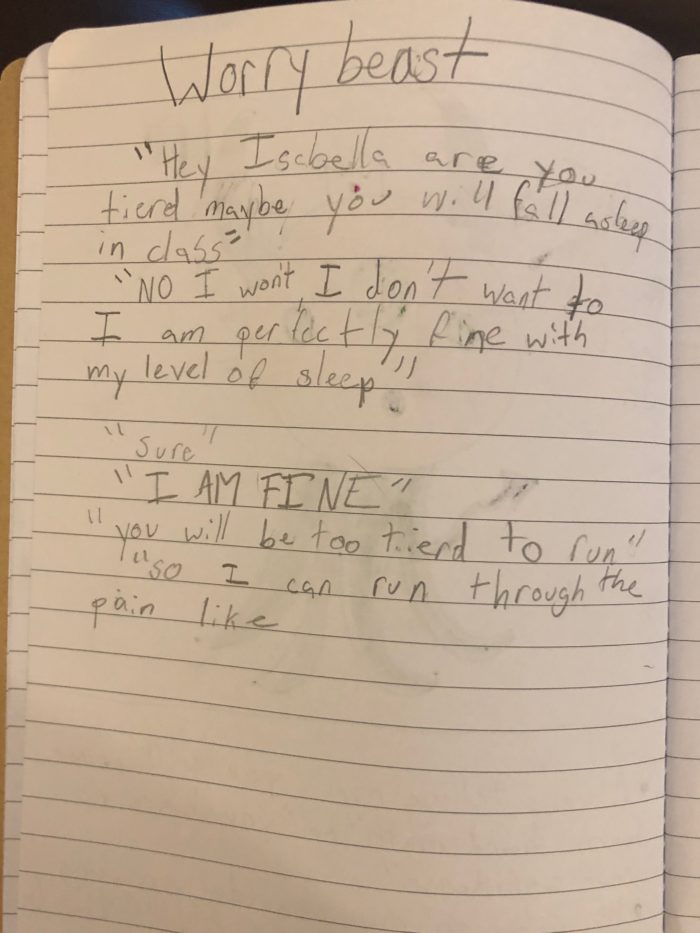 Worry beast
"Hey Isabella are you
tierd maybe you will fall asleep
in class"
"NO I won't, I don't want to
I am perfectly fine with
my level of sleep"
"sure"
"I AM FINE"
"you will be too tierd to run"
"so I can run through the
pain like